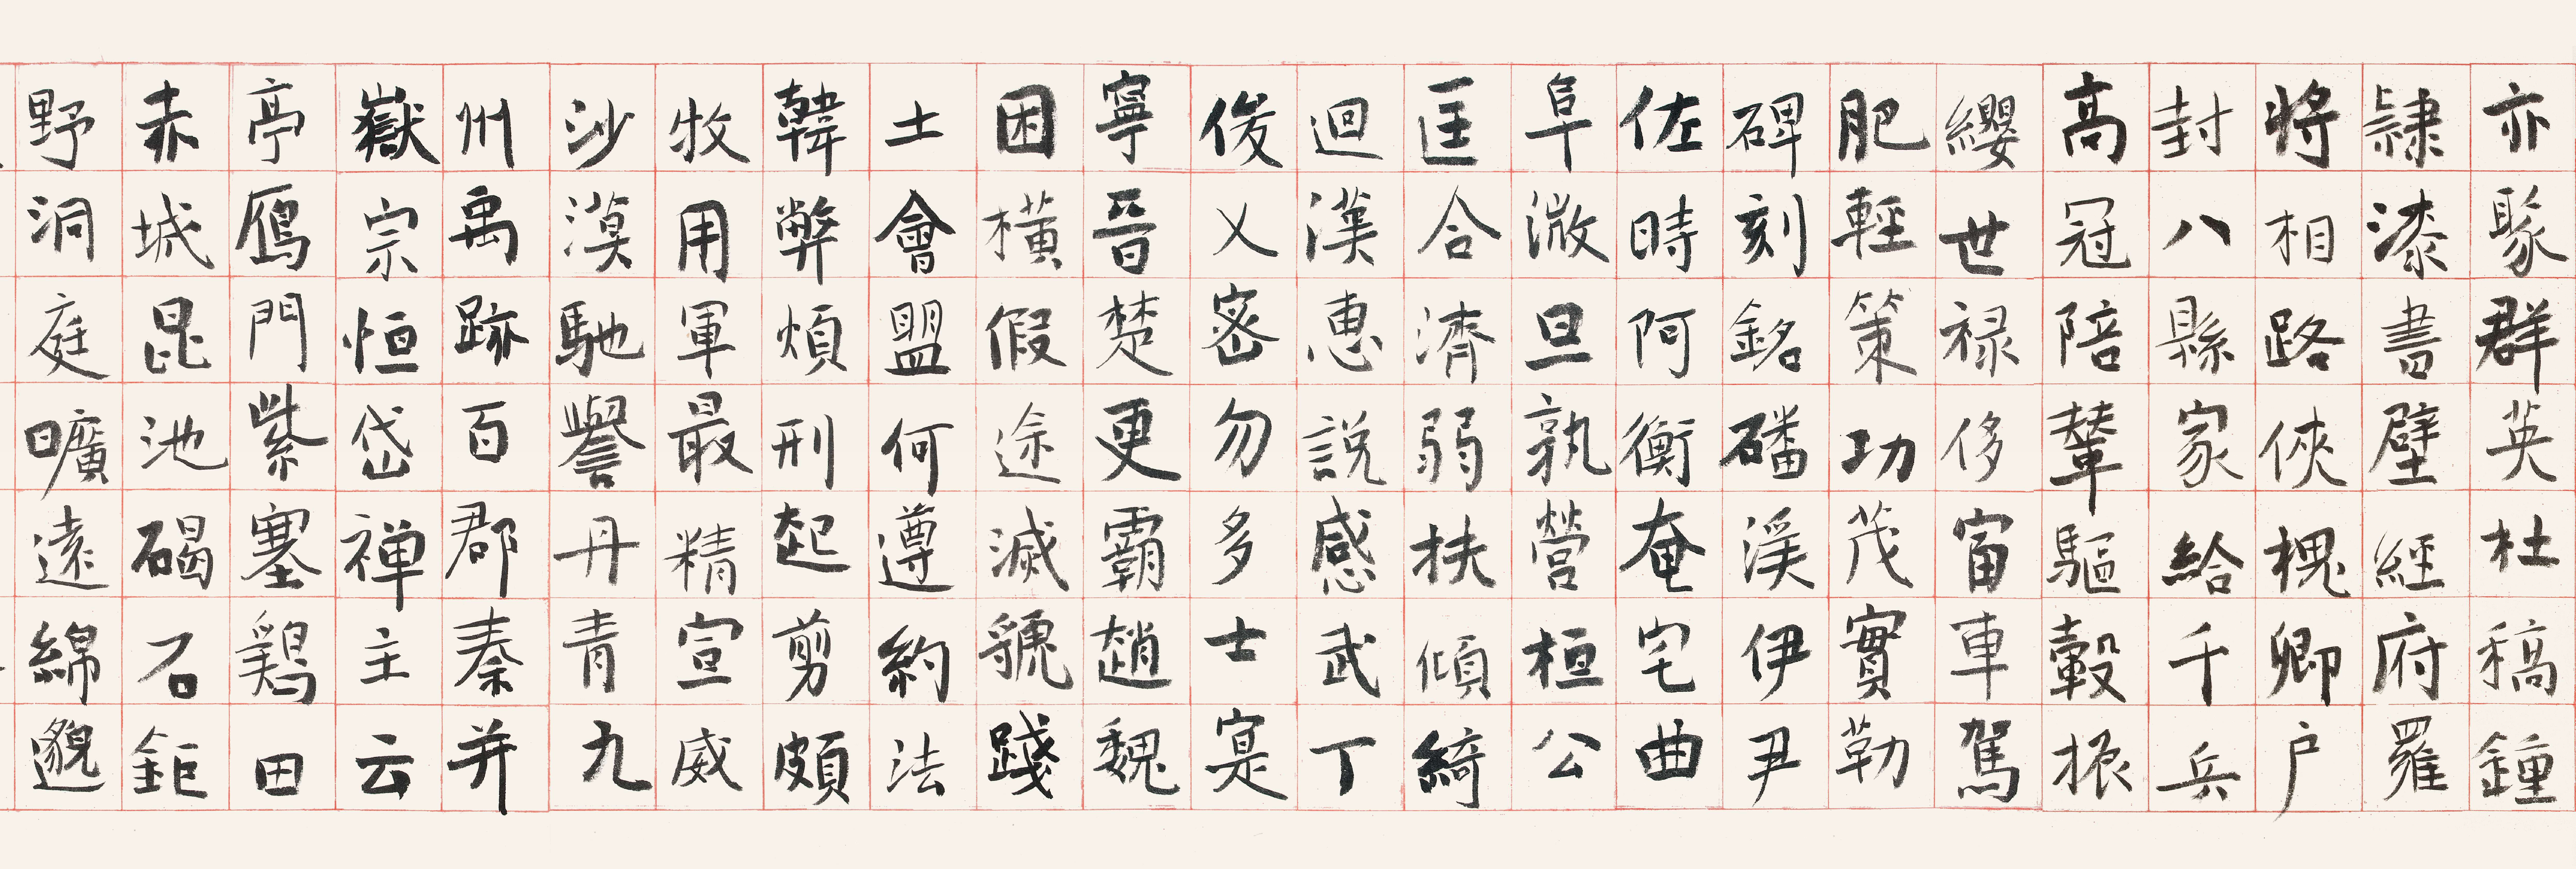 亦聚群英杜稿鍾
隷漆書壁經府羅
將相路俠槐卿户
封八縣家給千兵
高冠陪輦驅轂振
纓世禄侈富車駕
肥輕策功茂實勒
碑刻銘磻溪伊尹
佐時阿衡奄宅曲
阜微旦孰營桓公
匡合濟弱扶傾綺
迴漢惠説感武丁
俊乂密勿多士寔
寧晉楚更霸趙魏
困橫假途滅虢踐
土會盟何遵約法
韓弊煩刑起翦頗
牧用軍最精宣威
沙漠馳譽丹青九
州禹跡百郡秦并
嶽宗恒岱禅主云
亭鴈門紫塞鷄田
赤城昆池碣石鉅
野洞庭曠遠綿邈